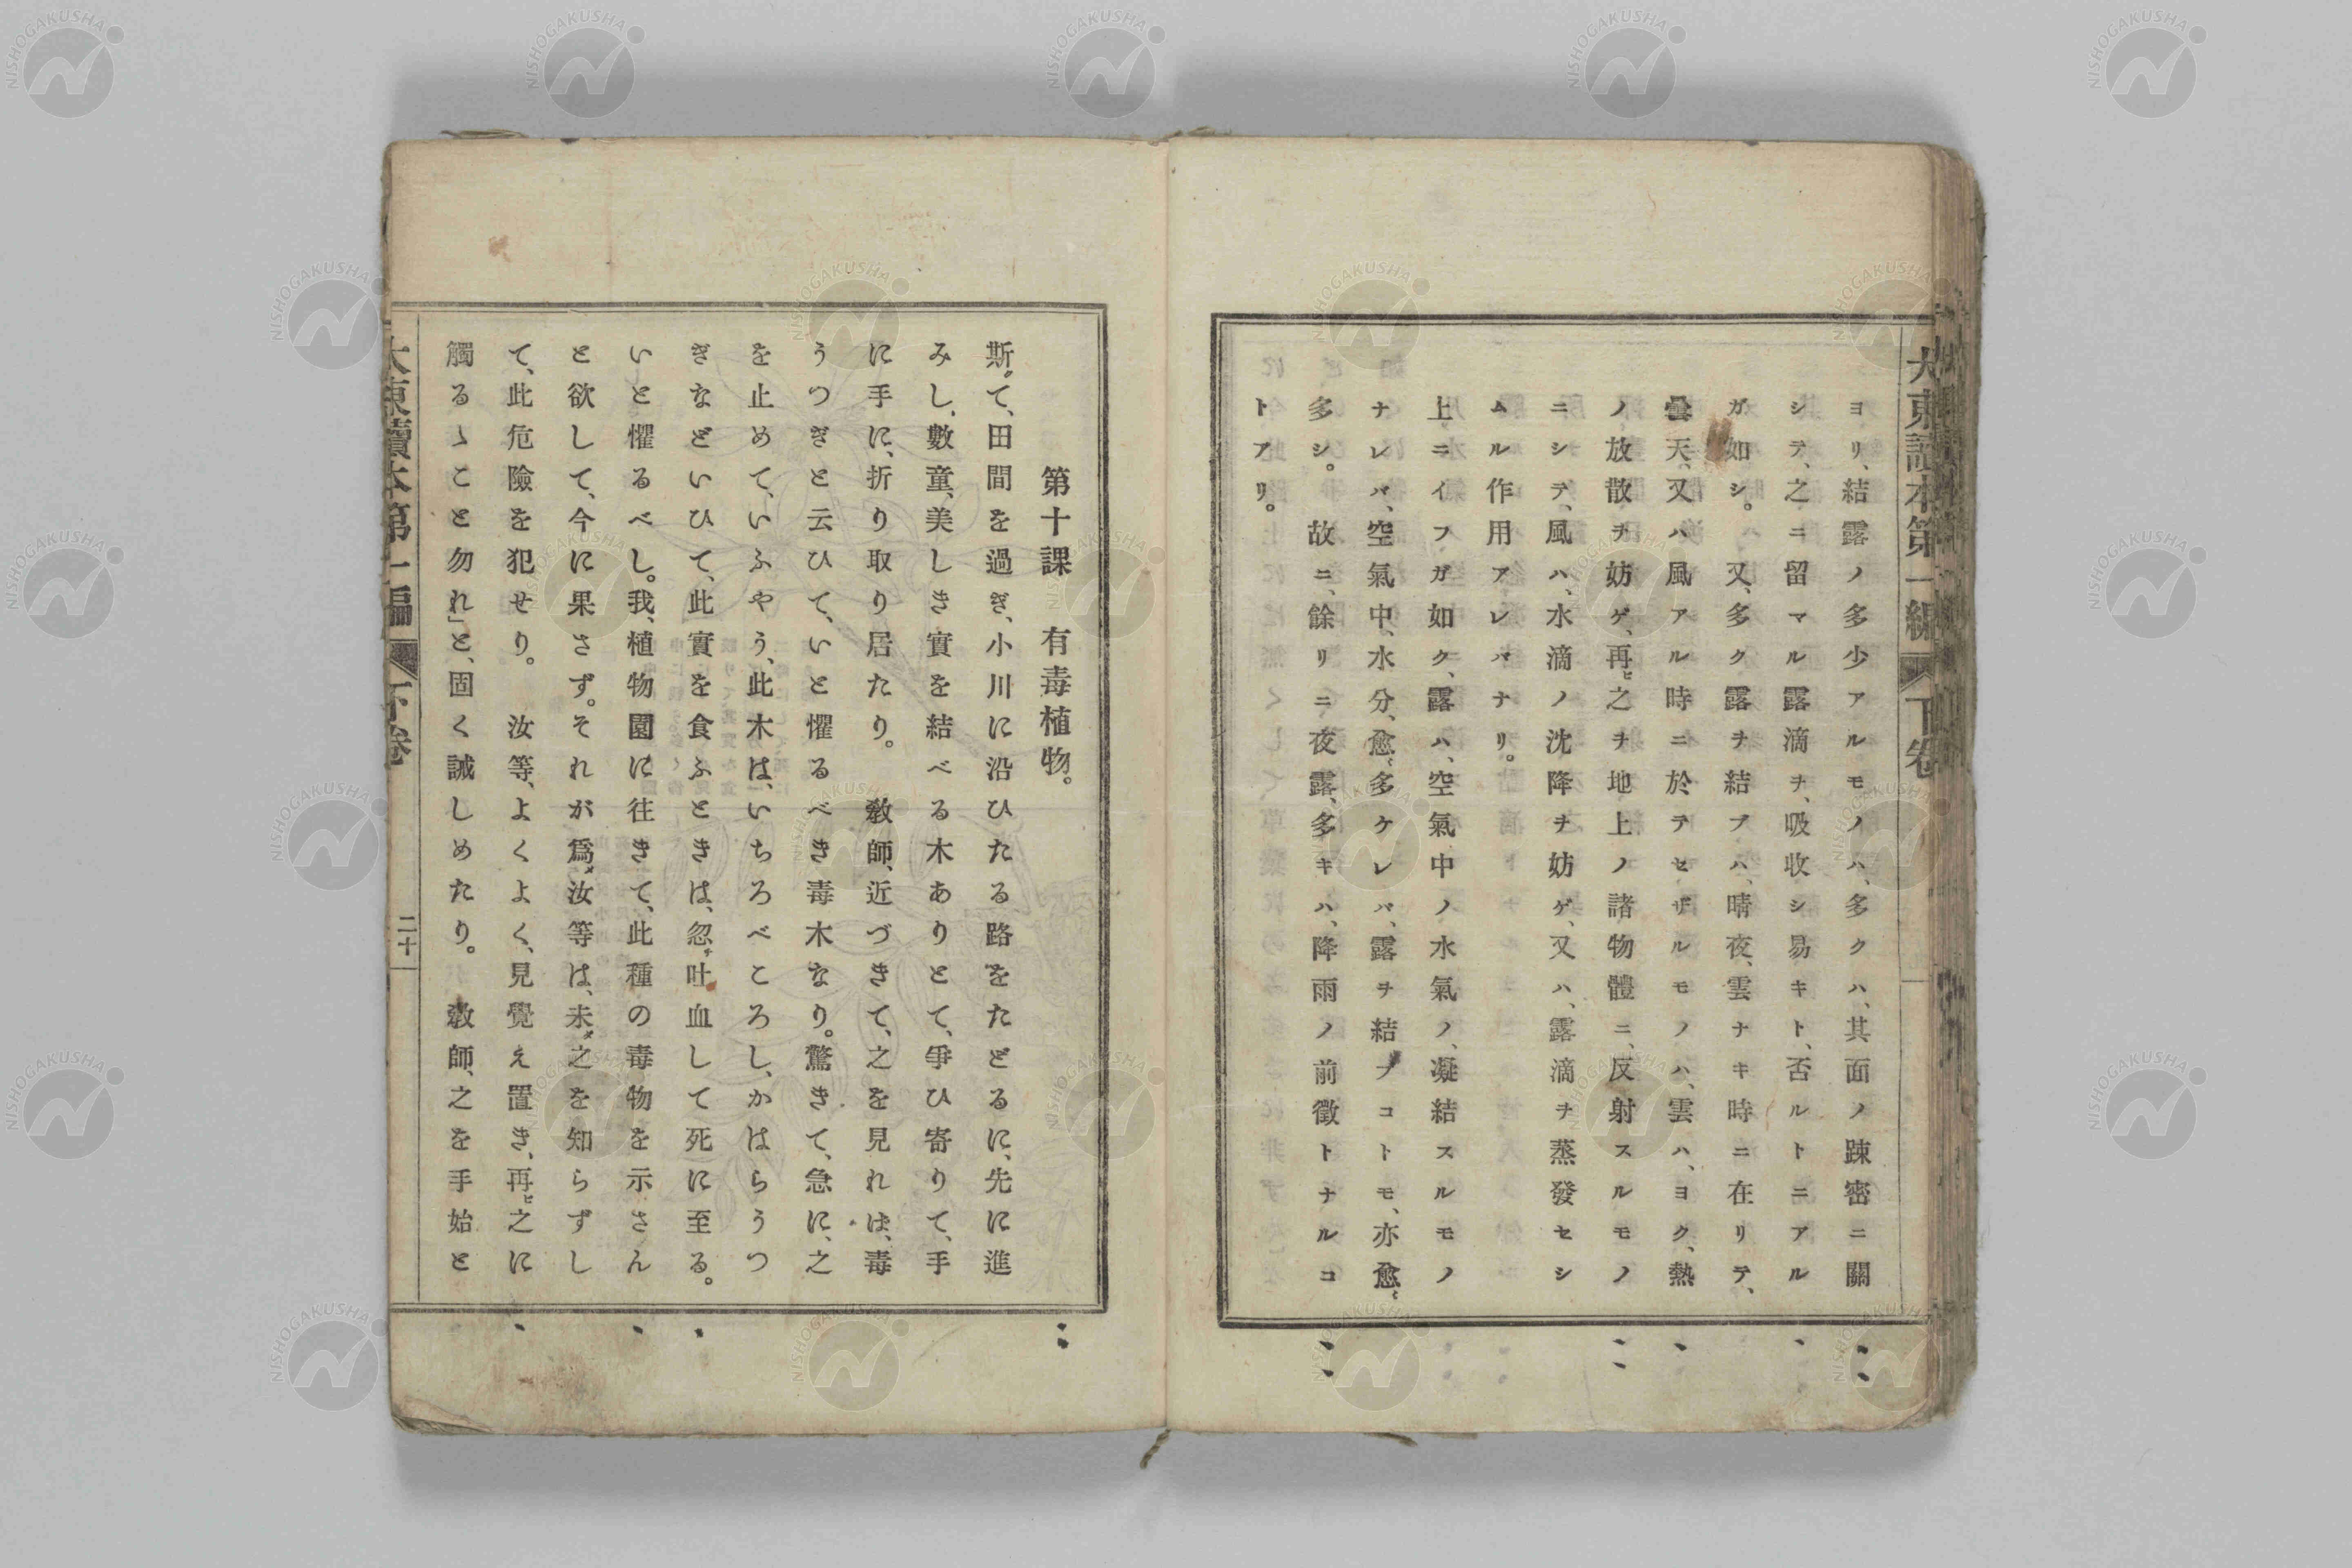 大東讀本第一編 下卷
ヨリ、結露ノ多少アルモノハ、多クハ、其面ノ踈密ニ關
シテ、之ニ留マル露滴ヲ、吸收シ易キト、否ルトニアル
ガ如シ。又、多ク露ヲ結ブハ、晴夜、雲ナキ時ニ在リテ、
曇天、又ハ風アル時ニ於テセザルモノハ、雲ハ、ヨク、熱
ノ放散ヲ妨ゲ、再ビ之ヲ地上ノ諸物體ニ、反射スルモノ
ニシテ、風ハ、水滴ノ沈降ヲ妨ゲ、又ハ、露滴ヲ蒸發セシ
ムル作用アレバナリ。
上ニイフガ如ク、露ハ、空氣中ノ水氣ノ、凝結スルモノ
ナレバ、空氣中、水分、愈〻多ケレバ、露ヲ結ブコトモ、亦愈〻
多シ。故ニ、餘リニ夜露、多キハ、降雨ノ前徵トナルコ
トアリ。
第十課 有毒植物。
斯くて、田間を過ぎ、小川に沿ひたる路をたどるに、先に進
みし、數童、美しき實を結べる木ありとて、爭ひ寄りて、手
に手に、折り取り居たり。敎師、近づきて、之を見れは、毒
うつぎと云ひて、いと懼るべき毒木なり。驚きて、急に、之
を止めて、いふやう、此木は、いちろべころし、かはらうつ
ぎなどいひて、此實を食ふときは、忽チ吐血して死に至る。
いと懼るべし。我、植物園に往きて、此種の毒物を示さん
と欲して、今に果さず。それが爲メ、汝等は、未ダ之を知らずし
て、此危險を犯せり。汝等、よくよく、見覺え置き、再ビ之に
觸るゝこと勿れ」と、固く誡しめたり。敎師、之を手始と
大東讀本第一編 下卷 二十